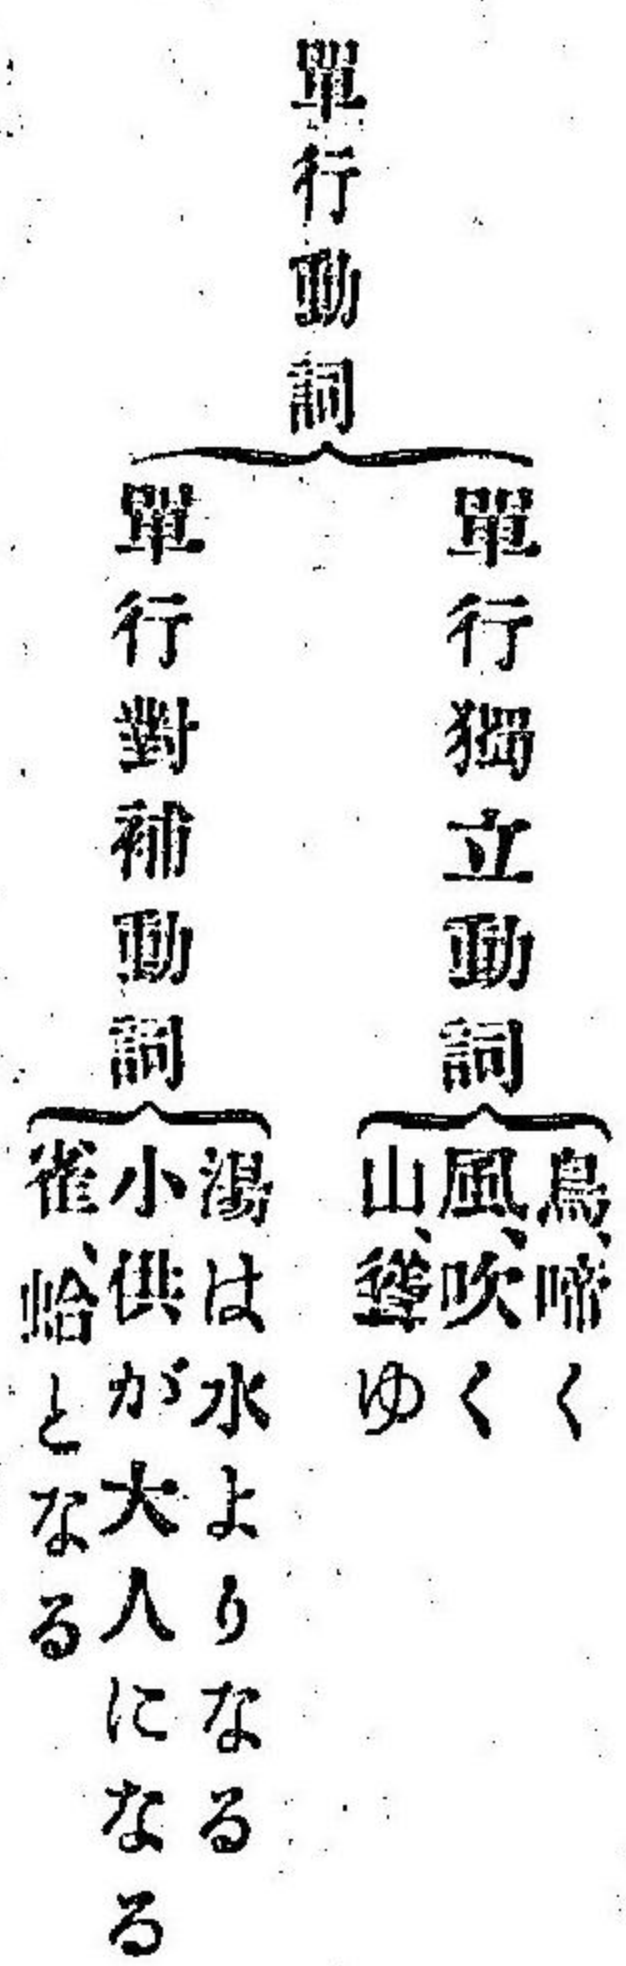 單行動詞
單行獨立動詞
鳥、啼く
風、吹く
山、聳ゆ
單行對補動詞
湯は水よりなる
小供が大人になる
雀、蛤となる